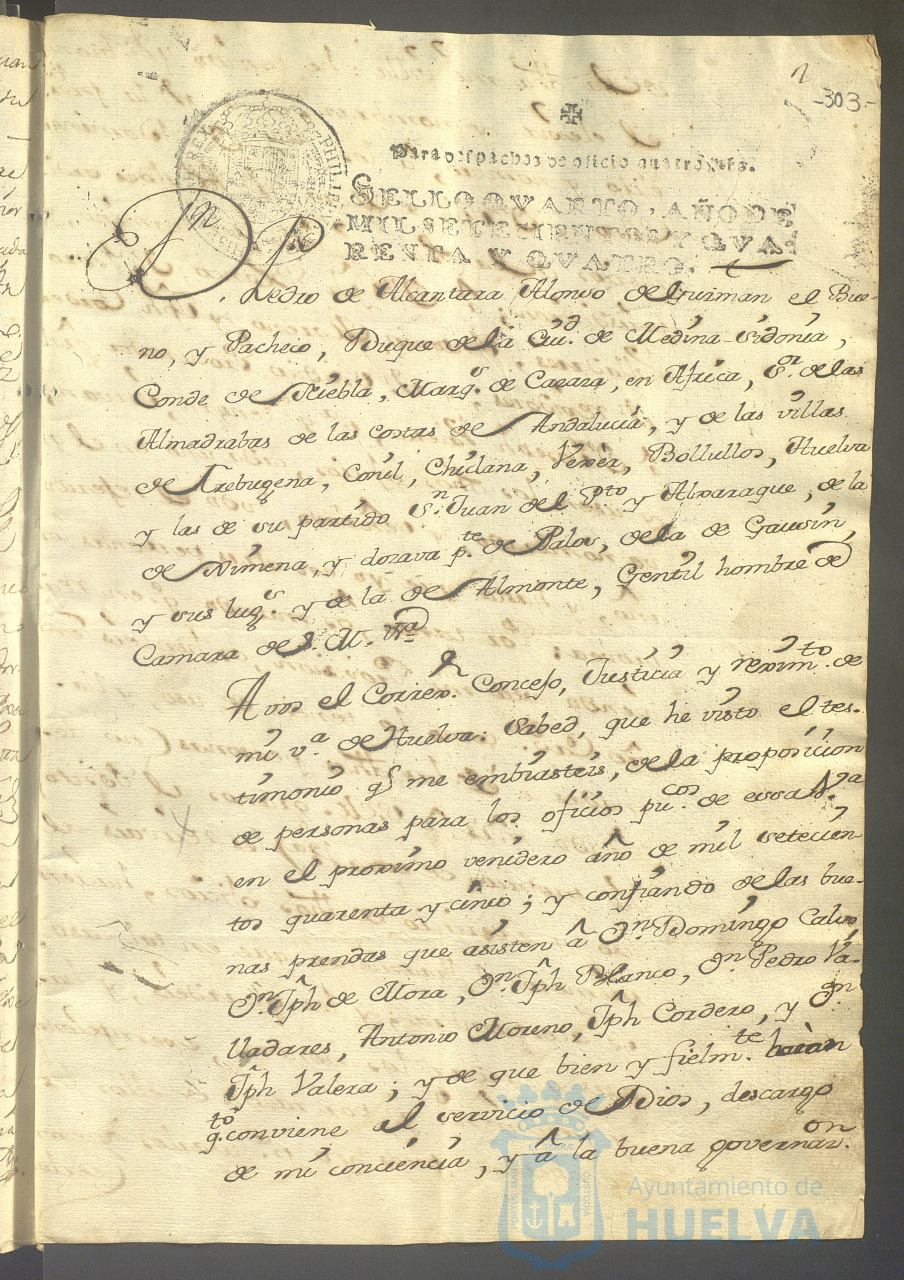 -303-
Para despachos de oficio quatro mrs.
SELLO QVARTO, AÑO DE
MIL SETECIENTOS Y QVA-
RENTA Y QVATRO.
Dn Pedro de Alcantara Alonso de Guzman el Bue-
no, y Pacheco, Duque de la Ciud. de Medina Sidonia,
Conde de Niebla, Marqs. de Cazaza, en Africa, Sor. de las
Almadrabas de las costas de Andalucia, y de las villas
de Trebugena, Conil, Chiclana, Vexer, Bollullos, Huelva
y las de su partido Sn. Juan del Pto y Alxaraque, de la
de Ximena, y dozava pte de Palos, de la de Gausin,
y sus lugs. y de la de Almonte, Gentil hombre de
Camara de S. M. &ra
A vos el Correxr. Concejo, Justicia y reximto. de
mi va. de Huelva: Sabed, que he visto el tes-
timonio qe me embiasteis, de la proposicion
de personas para los oficios pucos. de essa Va
en el proximo venidero año de mil setecien-
tos quarenta y cinco; y confiando de las bue-
nas prendas que asisten â Dn. Domingo Calvo
Dn. Jph de Mora, Dn. Jph Blanco, Dn. Pedro Va-
lladares, Antonio Moreno, Jph Cordero, y Dn
Jph Valera; y de que bien y fielmte. haràn
qto. conviene al servicio de Dios, descargo
de mi conciencia, y â la buena governazon.
Ayuntamiento de
HUELVA